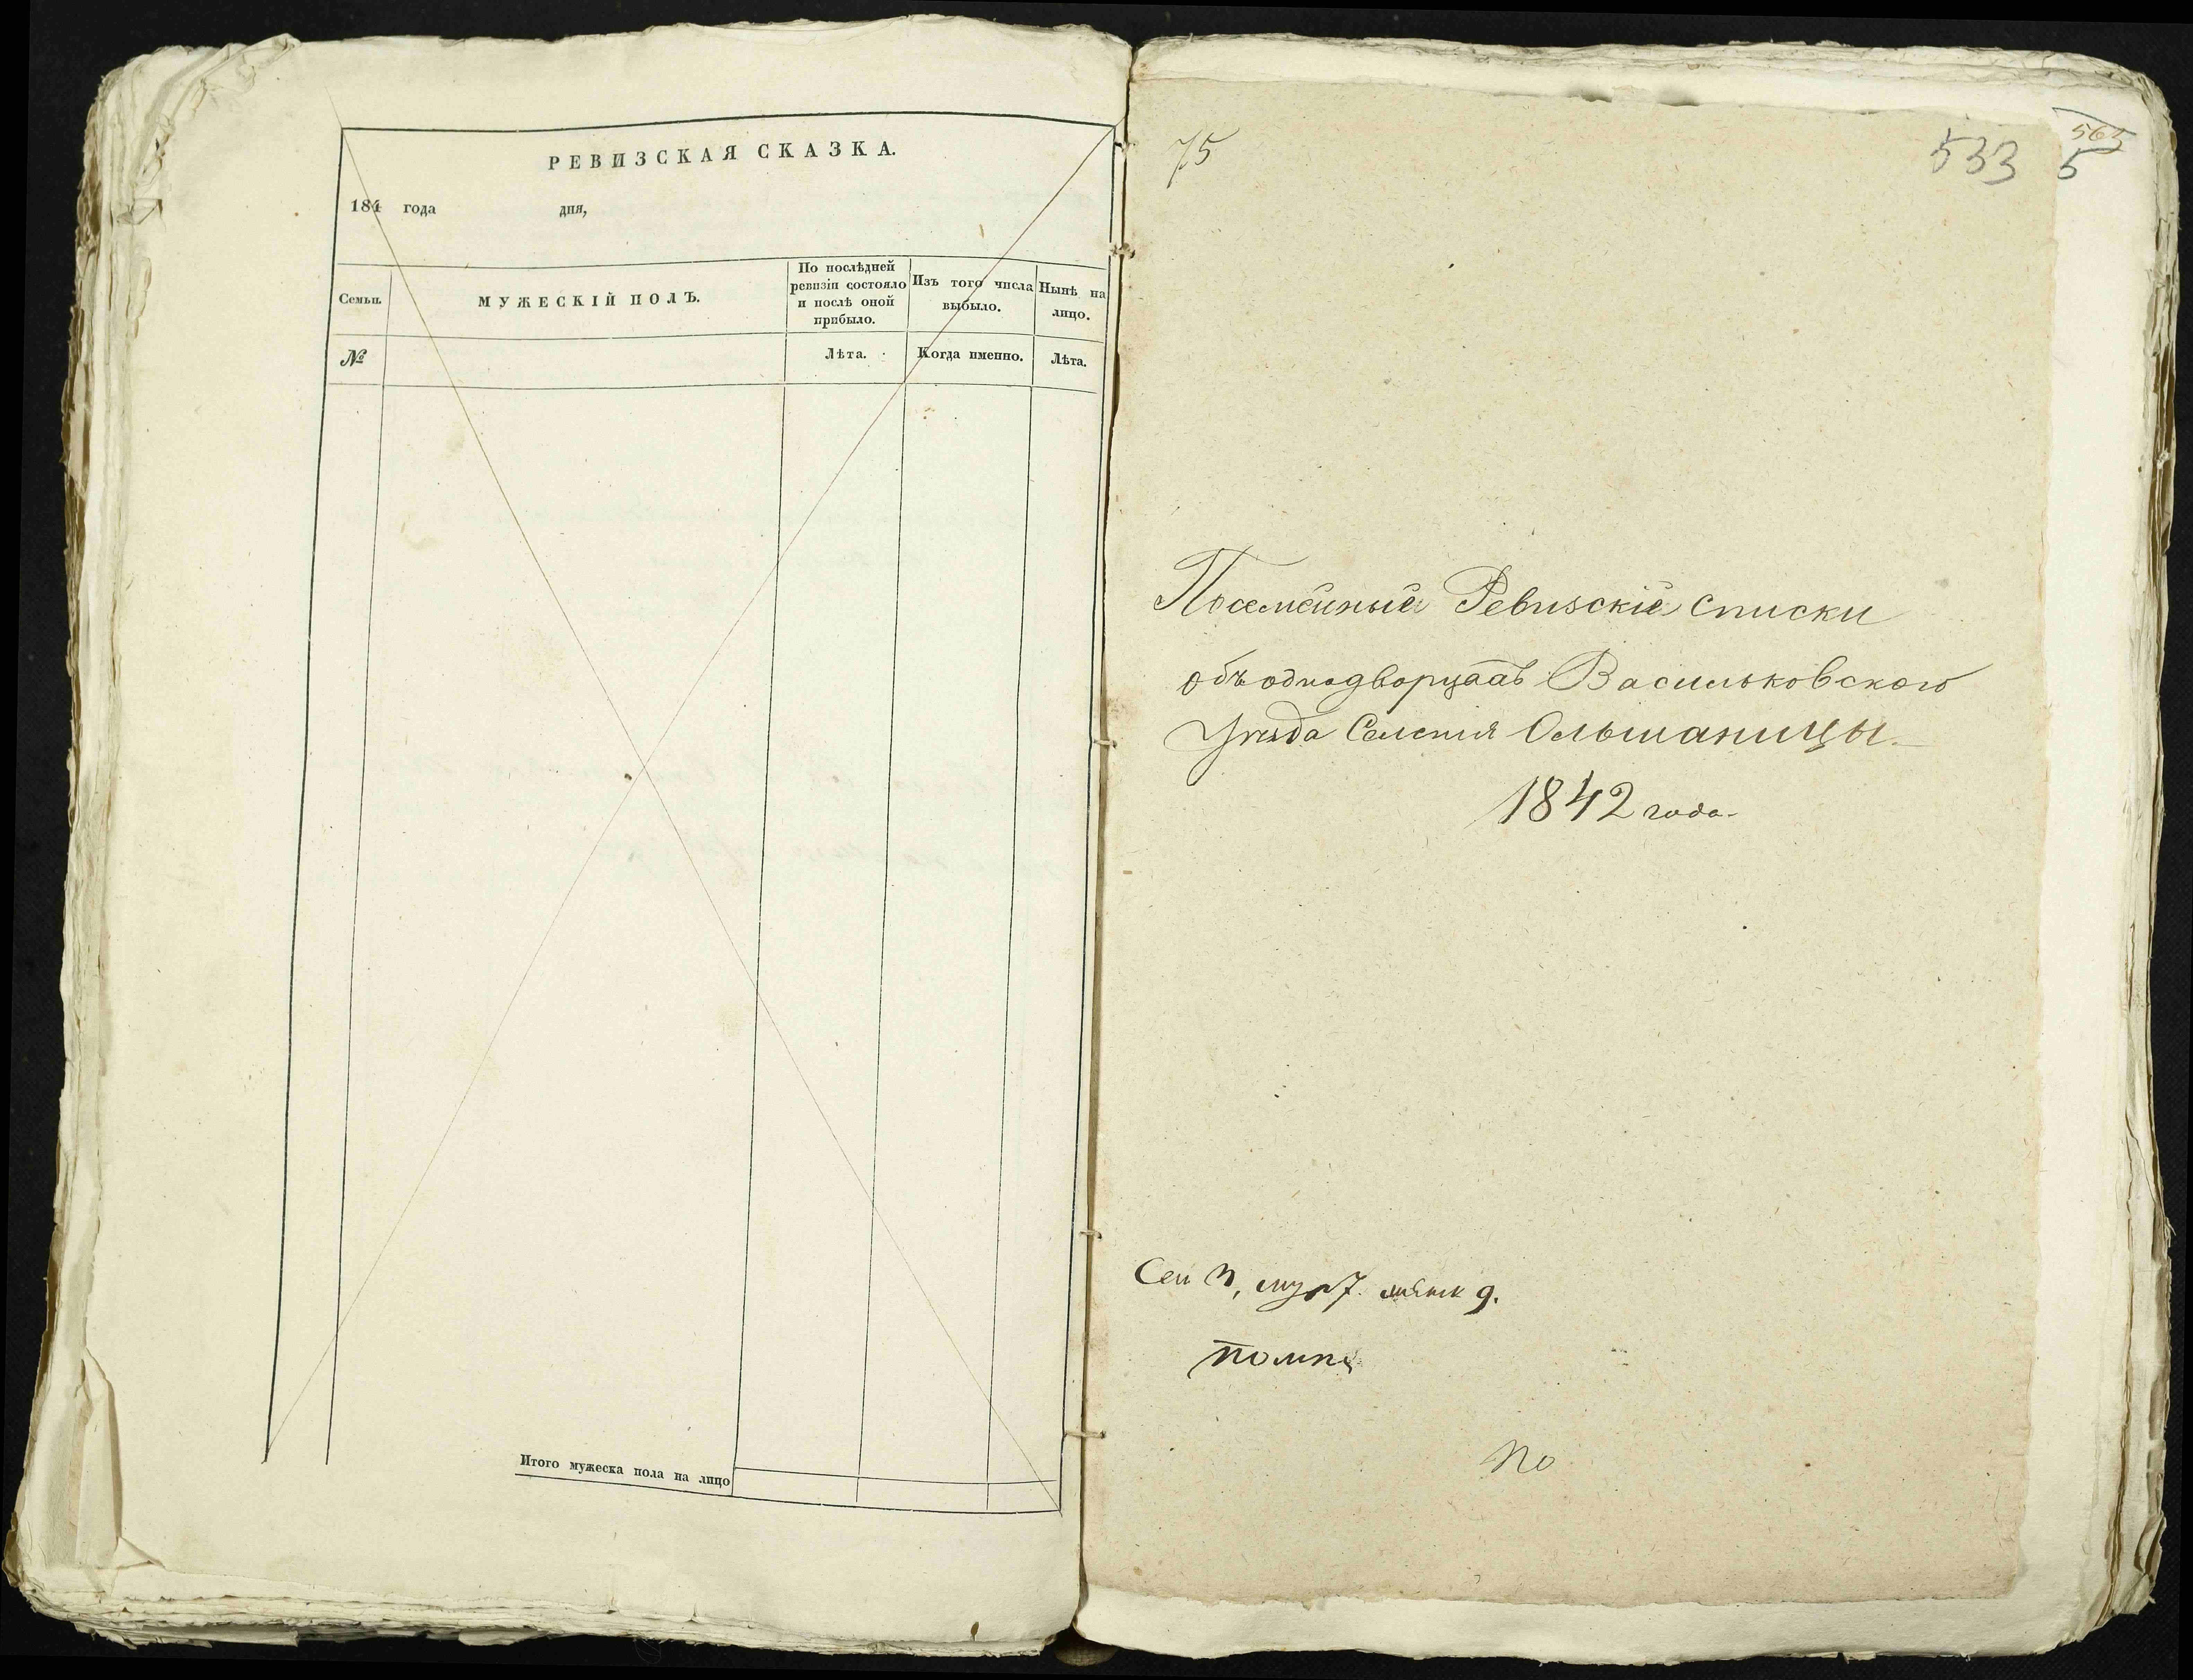 РЕВИЗСКАЯ СКАЗКА.
184 года дня,
Семьи.
МУЖЕСКІЙ ПОЛЪ.
По послѣдней
ревизіи состояло
и послѣ оной
прибыло.
Изъ того числа
выбыло.
Нынѣ на
лицо.
№
Лѣта.
Когда именно.
Лѣта.
Итого мужеска пола на лицо
75
533
5
Посемейныѐ Ревизскіе списки
объ однодворцахъ Васильковскаго
Уѣзда Селенія Ольшаницы.
1842 года.
7. 9.